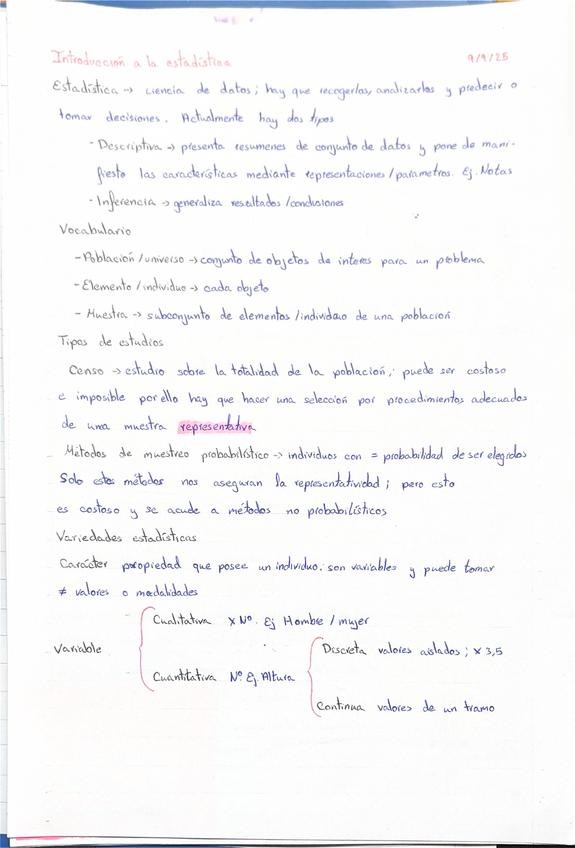 Introducción a la estadística 9/9/25
Estadística → ciencia de datos; hay que recogerlos, analizarlos y predecir o
tomar decisiones. Actualmente hay dos tipos
- Descriptiva → presenta resumenes de conjunto de datos y pone de mani-
fiesto las características mediante representaciones/parametros. Ej. Notas
- Inferencia → generaliza resultados/conclusiones
Vocabulario
- Población/universo → conjunto de objetos de interes para un problema
- Elemento/individuo → cada objeto
- Muestra → subconjunto de elementos/individuo de una población
Tipos de estudios
Censo → estudio sobre la totalidad de la población; puede ser costoso
e imposible por ello hay que hacer una selección por procedimientos adecuados
de una muestra representativa
Métodos de muestreo probabilístico → individuos con = probabilidad de ser elegidos
Solo estos métodos nos aseguran la representatividad; pero esto
es costoso y se acude a métodos no probabilísticos
Variedades estadísticas
Carácter propiedad que posee un individuo. son variables y puede tomar
≠ valores o modalidades
Cualitativa x Nº. Ej Hombre / mujer
Variable Discreta valores aislados; x 3,5
Cuantitativa Nº Ej. Altura
Continua valores de un tramo